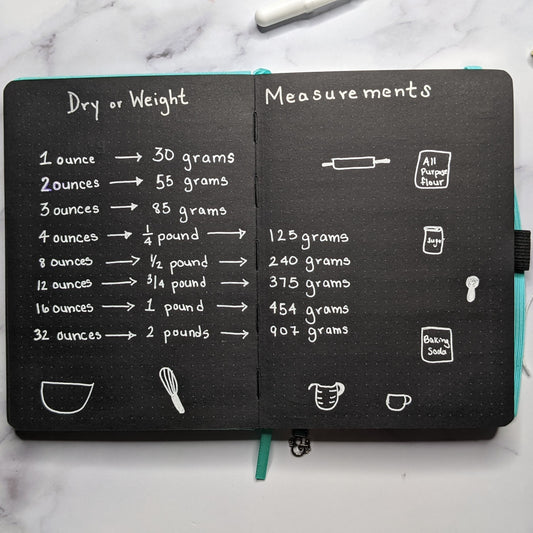 Dry or Weight Measurements
1 ounce → 30 grams
2 ounces → 55 grams
3 ounces → 85 grams
4 ounces → 1/4 pound → 125 grams
8 ounces → 1/2 pound → 240 grams
12 ounces → 3/4 pound → 375 grams
16 ounces → 1 pound → 454 grams
32 ounces → 2 pounds → 907 grams
All
Purpose
flour
Baking
Soda